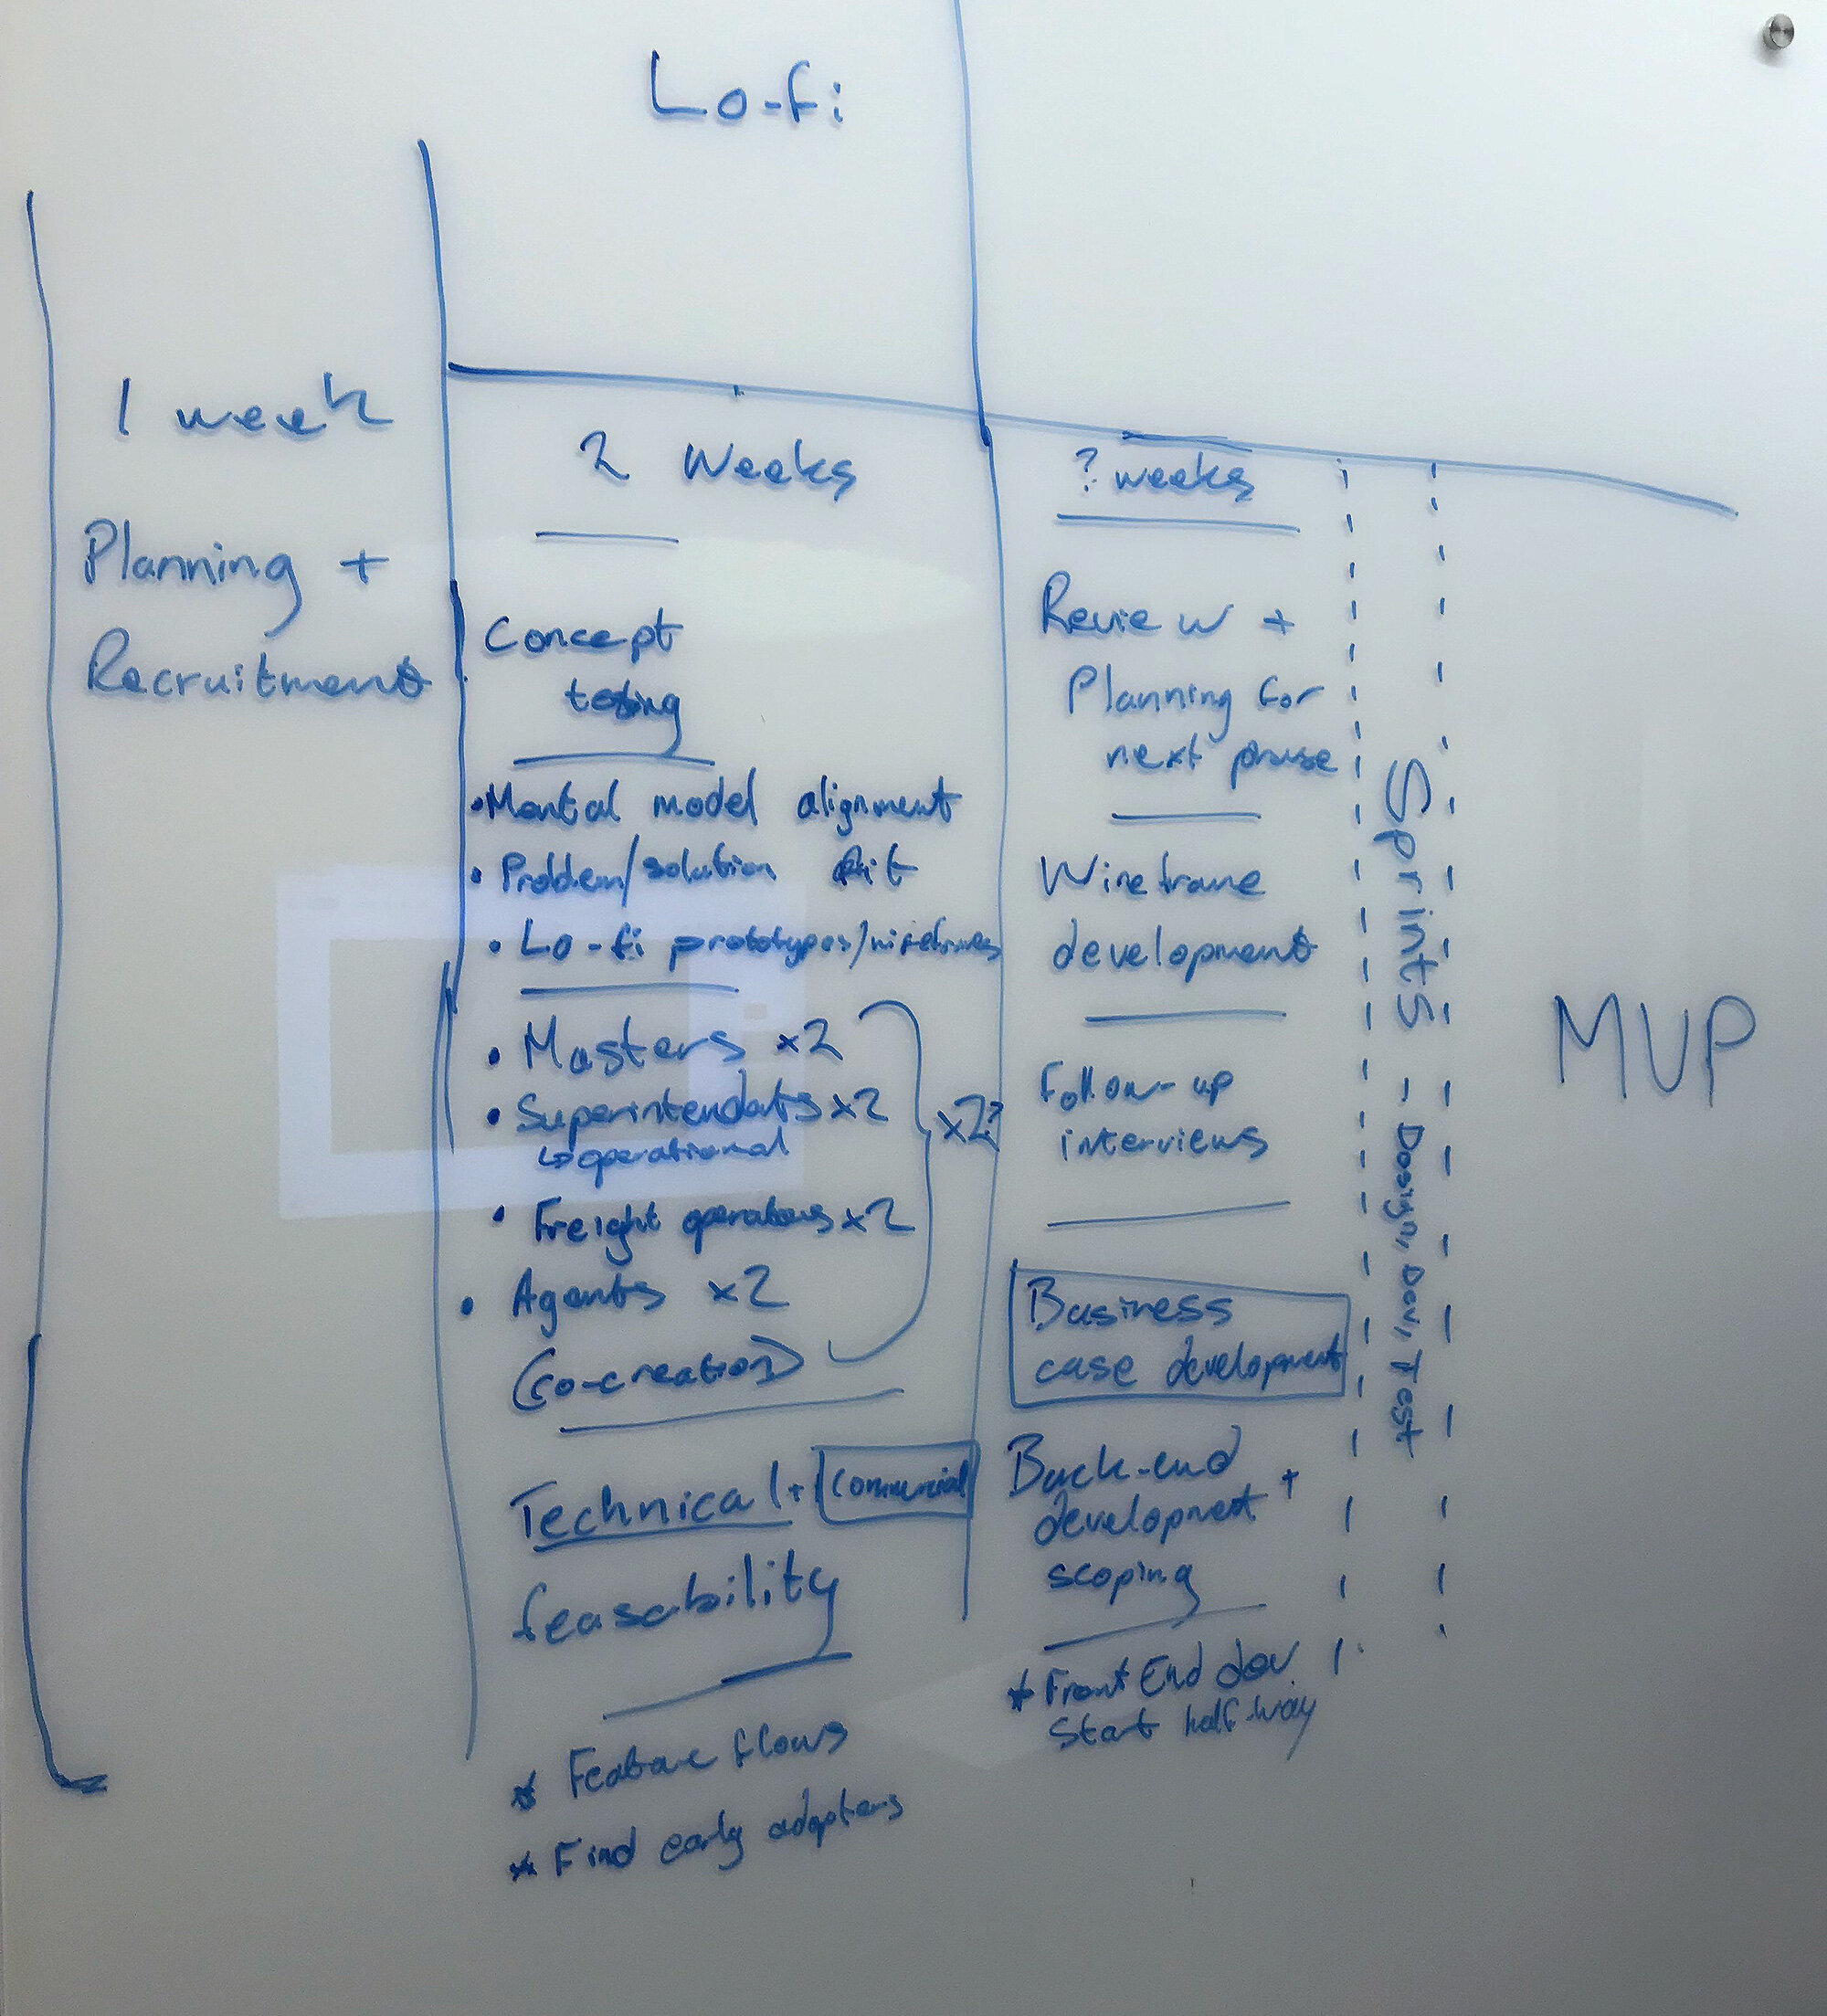 Lo-fi
1 week
Planning +
Recruitment
2 Weeks
Concept
testing
• Mental model alignment
• Problem/solution fit
• Lo-fi prototypes/wireframes
• Masters x2
• Superintendats x2
↳ operational
• Freight operators x2
• Agents x2
(co-creation)
x2?
Technical + Commercial
feasability
* Feature flows
* Find early adopters
? weeks
Review +
Planning for
next phase
Wireframe
development
Follow-up
interviews
Business
case development
Back-end
development +
scoping
* Front End dev
Start half-way
Sprints - Design, Dev, Test
MVP